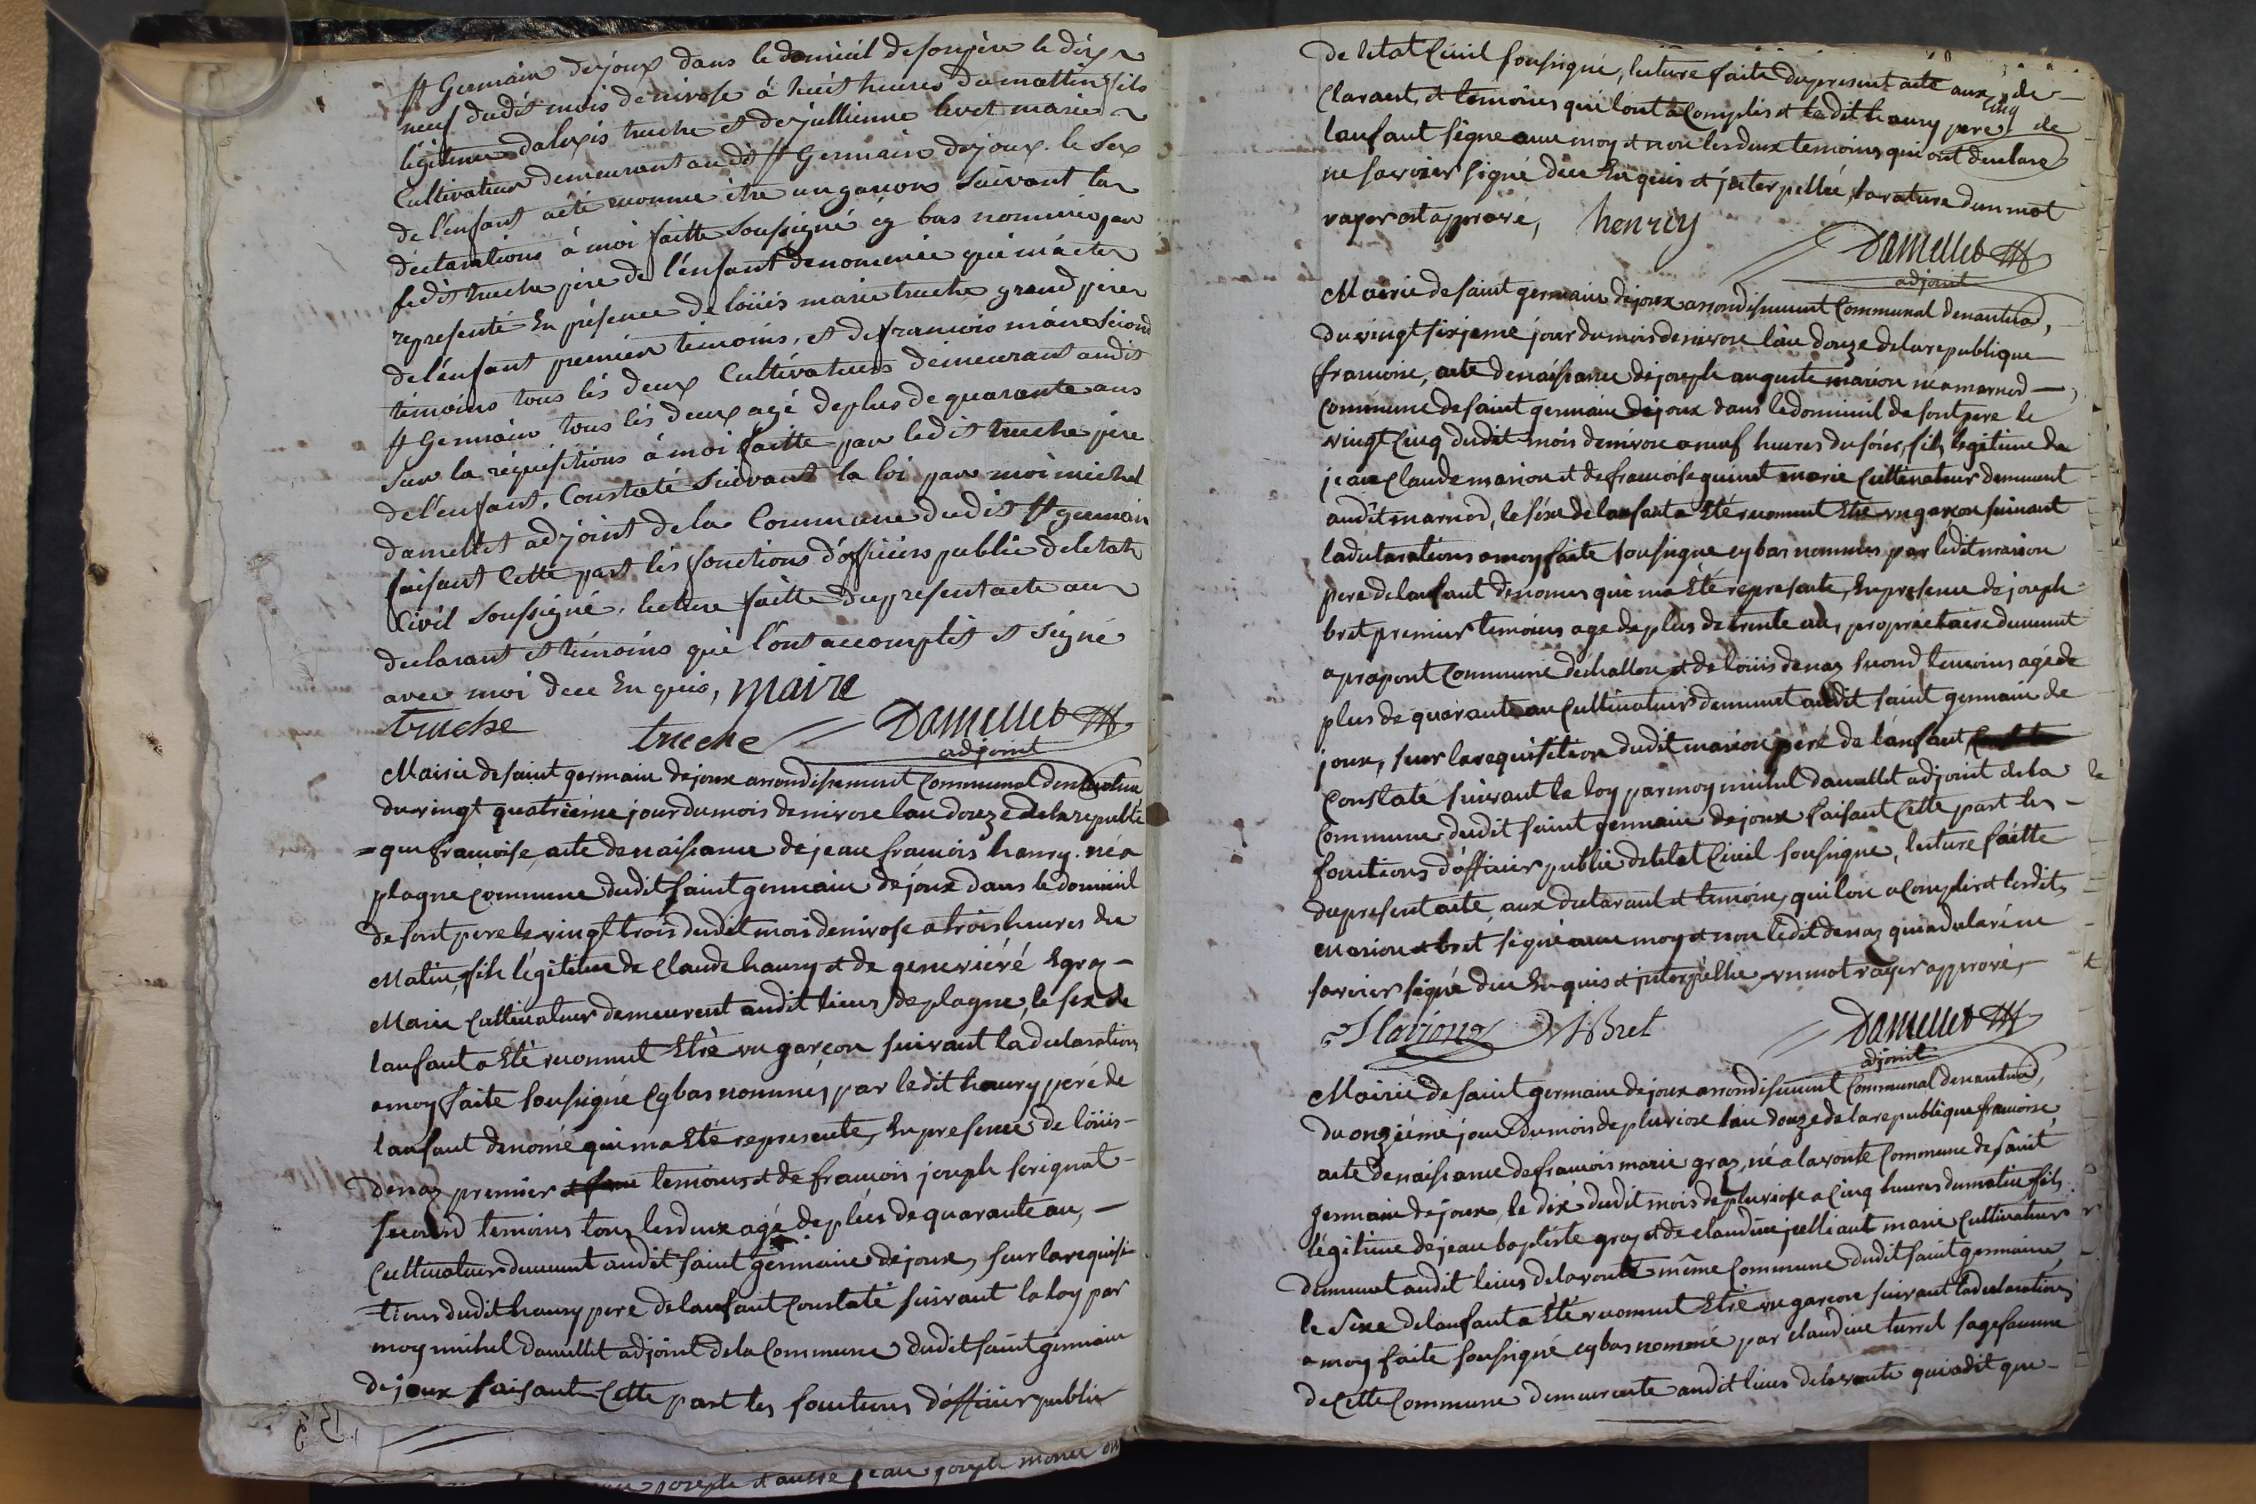 st Germain dejoux dans le domicil de son père le dix
neuf dudit mois de nivose à huit heures du mattin fils
légitime dalexis truche et de jullienne levet mariés
Cultivateur demeurant audit st Germain dejoux. le sex
de l'enfant a été reconnue être un garcon suivant la
déclarations à moi faitte soussigné cy bas nommé par
ledit truche père de l'enfant denommée qui m'a été
représenté En présence de loüis marie truche grand père
de l'enfant premier témoins, et de francois maire second
témoins tous lés deux Cultivateurs demeurant audit
st Germain tous lés deux agé de plus de quarante ans
sur la réquisitions à moi faitte par ledit truche père
de l'enfant. Constaté suivant la loi par moi michel
damellet adjoint de la Commune dudit st germain
faisant Cette part lés fonctions d'officiers public de letat
Civil soussigné, lecture faitte du présent acte aux
declarant et témoins qui l'ont accomplis et signé
avec moi dece Enquis, maire
truche truche Damellet
adjoint
Mairie de saint germain dejoux arrondissement Communal denantua
du vingt quatrieme jour du mois de nivose lan douze de la republi
=que francoise, acte de naissance de jean francois henry. né a
plagne Commune dudit saint germain dejoux dans le domicil
de sont pere le vingt trois dudit mois de nivose a trois heures du
Matin, fils légitime de Claude henry et de genevieve Egraz-
Marié Cultivateur demeurent audit lieux de plagne, le sex de
lanfant a Eté reconnut Etre un garcon suivant la declaration
a moy faite soussigné Cy bas nommés par ledit henry peré de
lanfant denomé qui ma Eté representé, En presence de loüis-
denaz premier temoins et de francois joseph serignat-
second temoins tous les deux agé de plus de quarante an,-
Cultivateur demeurent audit saint germain dejoux, sur la requisi
tions dudit henry pere de lanfant Constaté suivant la loy par
moy michel damellet adjoint de la Commune dudit saint germain
dejoux faisant Cette part les fonctions d'officier public
joseph et autre jean joseph
de létat Civil soussigné, lecture faite du present acte aux de-
Clarant, et temoins qui lont acomplis et le dit henry pere de
lanfant signe avec moy et non les deux temoins qui ont declare
ne savoier signé dece Enquis et jnterpellée, la rature dun mot
rayer est apprové, henriy
Damellet
adjoint
Mairie de saint germain dejoux arrondissement Communal denantua,
du vingt sixjeme jour du mois de nivose lan douze de la republique
francoise, acte de naissance de joseph auguste marion né a marnod-
Commune de saint germain dejoux dans le domicil de sont pere le
vingt Cinq dudit mois de nivose a neuf heures du soier, fils legitime de
jean Claude marion et de francoise quinet marié Cultivateur demeurent
audit marnod, le séxe de lanfant a Eté reconnut Etre un garcon suivant
la declarations a moy faite soussigne cy bas nommés par ledit marion
pere de lanfant denomés qui ma Eté representé, En presence de joseph
bret premier temoins age de plus de trente an, propriétaire demeurent
a prapont Commune de challou et de loüis denaz second temoins agé de
plus de quarante an Cultivateur demeurent audit saint germain de
joux, sur la requisition dudit marion péré de lánfant
Constaté suivant la loy par moy michel damellet adjoint de la
Commune dudit saint germain dejoux faisant Cette part les-
fonctions d'officier public de letat Civil soussigné, lecture faitte
du present acte, aux declarant et temoins, qui lon acomplis et lesdits
marion et bret signé avec moy et non ledit denaz qui a declaré ne
savoier signé dece Enquis et jnterpellée, un mot rayer apprové,
Marion J Bret Damellet
adjoint
Mairie de saint germain dejoux arrondisement Communal denantua,
du onzieme jour du mois de pluviose lan douze de la republique francoise
acte de naissance de francois marie graz, né a la voute Commune de saint
germain dejoux, le dix dudit mois de pluviose a Cinq heures du matin fils
légitime de jean baptiste graz et de claudine julliant marié Cultivateur
demeurent audit lieus de la voute même Commune dudit saint germain,
le sexe de lanfant a Eté reconnut Etre un garcon suivant la declarations
a moy faite soussigné cy bas nommé par claudine turrel sage famme
de Cette Commune demeurante audit lieus de la voute qui a dit que-